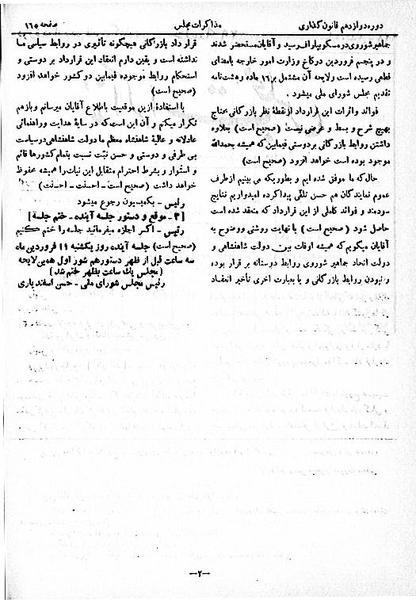 دوره دوازدهم قانون گذاری
مذاکرات مجلس
صفحه ۱۶۵
جماهیر شوروی در مسکو بپاراف رسید و آقایان مستحضر شدند
و در پنجم فروردین در کاخ وزارت امور خارجه بامضای
قطعی رسیده است ولایحه آن مشتمل بر ۱۶ ماده و هشت نامه
تقدیم مجلس شورای ملی میشود.
فوائد و اثرات این قرارداد از نقطه نظر بازرگانی محتاج
بهیچ شرح و بسط و عرضی نیست (صحیح است) بعلاوه
داشتن روابط بازرگانی بر دوستی فیمابین که همیشه بحمدالله
موجود بوده است خواهد افزود (صحیح است)
حالا که ما موفق شده ایم و بطوریکه می بینیم از طرف
عموم نمایندگان هم حسن تلقی پیدا کرده امیدواریم نتایج
سودمند و فوائد کاملی از این قرارداد که منعقد شده است
حاصل شود (صحیح است) با نهایت روشنی ووضوح به
آقایان میگویم که همیشه اوقات بین دولت شاهنشاهی و
دولت اتحاد جماهیر شوروی روابط دوستانه بر قرار بوده
و نبودن روابط بازرگانی و یا بعبارت اخری تأخیر انعقاد
قرارداد بازرگانی هیچگونه تأثیری در روابط سیاسی ما
نداشته است و یقین دارم انعقاد این قرارداد بر دوستی و
استحکام روابط موجوده فیمابین دو کشور خواهد افزود
(صحیح است)
با استفاده از این موقعیت باطلاع آقایان میرسانم و بازهم
تکرار میکنم و آن این است که در سایهٔ هدایت و راهنمائی
عادلانه و عالیهٔ شاهنشاه معظم ما دولت شاهنشاهی در سیاست
بی طرفی و دوستی و حسن نیت نسبت بتمام کشورها قائم
و استوار و بشرط احترام متقابل این نیات را همیشه محفوظ
خواهد داشت (صحیح است- احسنت - احسنت)
رئیس - بکمیسیون رجوع میشود
[۳ - موقع و دستور جلسه آینده - ختم جلسه]
رئیس - اگر اجازه میفرمائید جلسه را ختم کنیم
(صحیح است) جلسه آینده روز یکشنبه ۱۱ فروردین ماه
سه ساعت قبل از ظهر دستور هم شور اول همین لایحه
(مجلس یک ساعت بظهر ختم شد)
رئیس مجلس شورای ملی - حسن اسفندیاری
—۲—